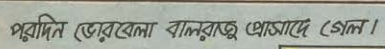 পরদিন ভোরবেলা বালরাজু প্রাসাদে গেল।